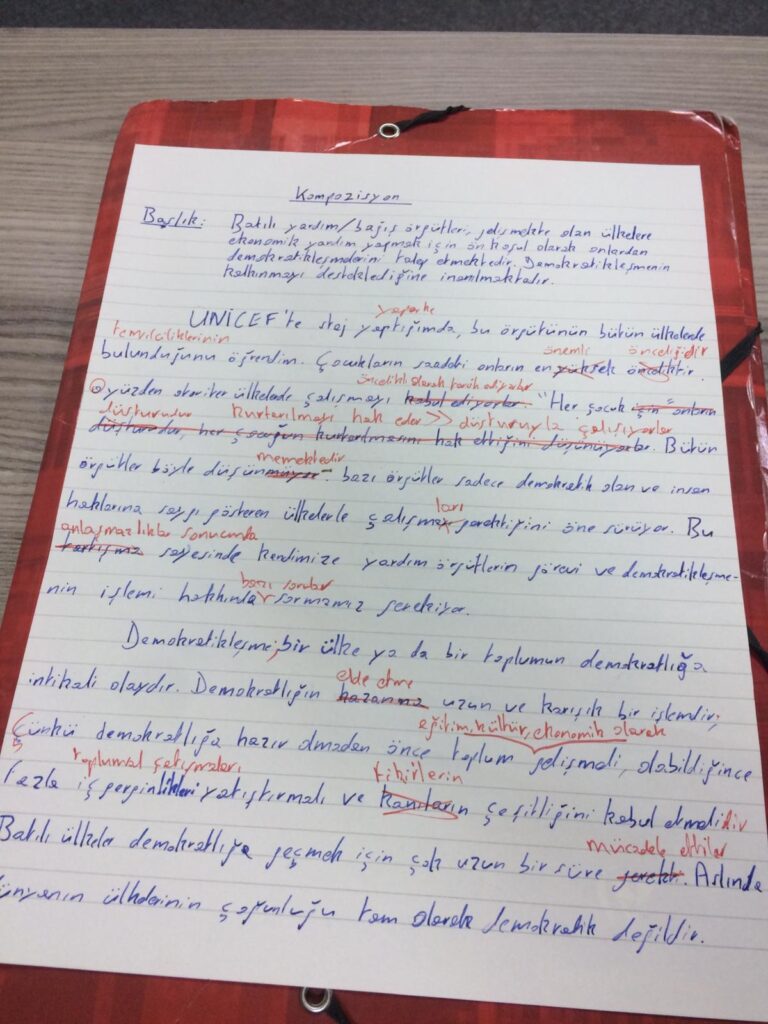 Kompozisyon
Başlık: Batılı yardım/bağış örgütleri, gelişmekte olan ülkelere
ekonomik yardım yapmak için ön koşul olarak onlardan
demokratikleşmelerini talep etmektedir. Demokratikleşmenin
kalkınmayı desteklediğine inanılmaktadır.
yaparken
UNİCEF'te staj yaptığımda, bu örgütünün bütün ülkelerde
temsilciliklerinin önemli önceliğidir
bulunduğunu öğrendim. Çocukların saadeti onların en yüksek
öncelikli olarak tercih ediyorlar
O yüzden otoriter ülkelerde çalışmayı kabul ediyorlar. "Her çocuk için" onların
düsturudur kurtarılmayı hak eder >> düsturuyla çalışıyorlar
düsturudur, her çocuğun kurtarılmasını hak ettiğini düşünüyorlar. Bütün
memektedir
örgütler böyle düşünmüyor. bazı örgütler sadece demokratik olan ve insan
ları
haklarına saygı gösteren ülkelerle çalışmak gerektiğini öne sürüyor. Bu
anlaşmazlıklar sonucunda
tartışma sayesinde kendimize yardım örgütlerin görevi ve demokratikleşme-
bazı sorular
nin işlemi hakkında sormamız gerekiyor.
Demokratikleşme, bir ülke ya da bir toplumun demokratlığa
elde etme
intikali olaydır. Demokratlığın kazanma uzun ve karışık bir işlemdir;
eğitim, kültür, ekonomik olarak
Çünkü demokratlığa hazır olmadan önce toplum gelişmeli, olabildiğince
toplumsal çatışmaları fikirlerin
fazla iç gerginlikleri yatıştırmalı ve kanıların çeşitliğini kabul etmelidir
mücadele ettiler
Batılı ülkeler demokratlığa geçmek için çok uzun bir süre gerekti. Aslında
dünyanın ülkelerinin çoğunluğu tam olarak demokratik değildir.